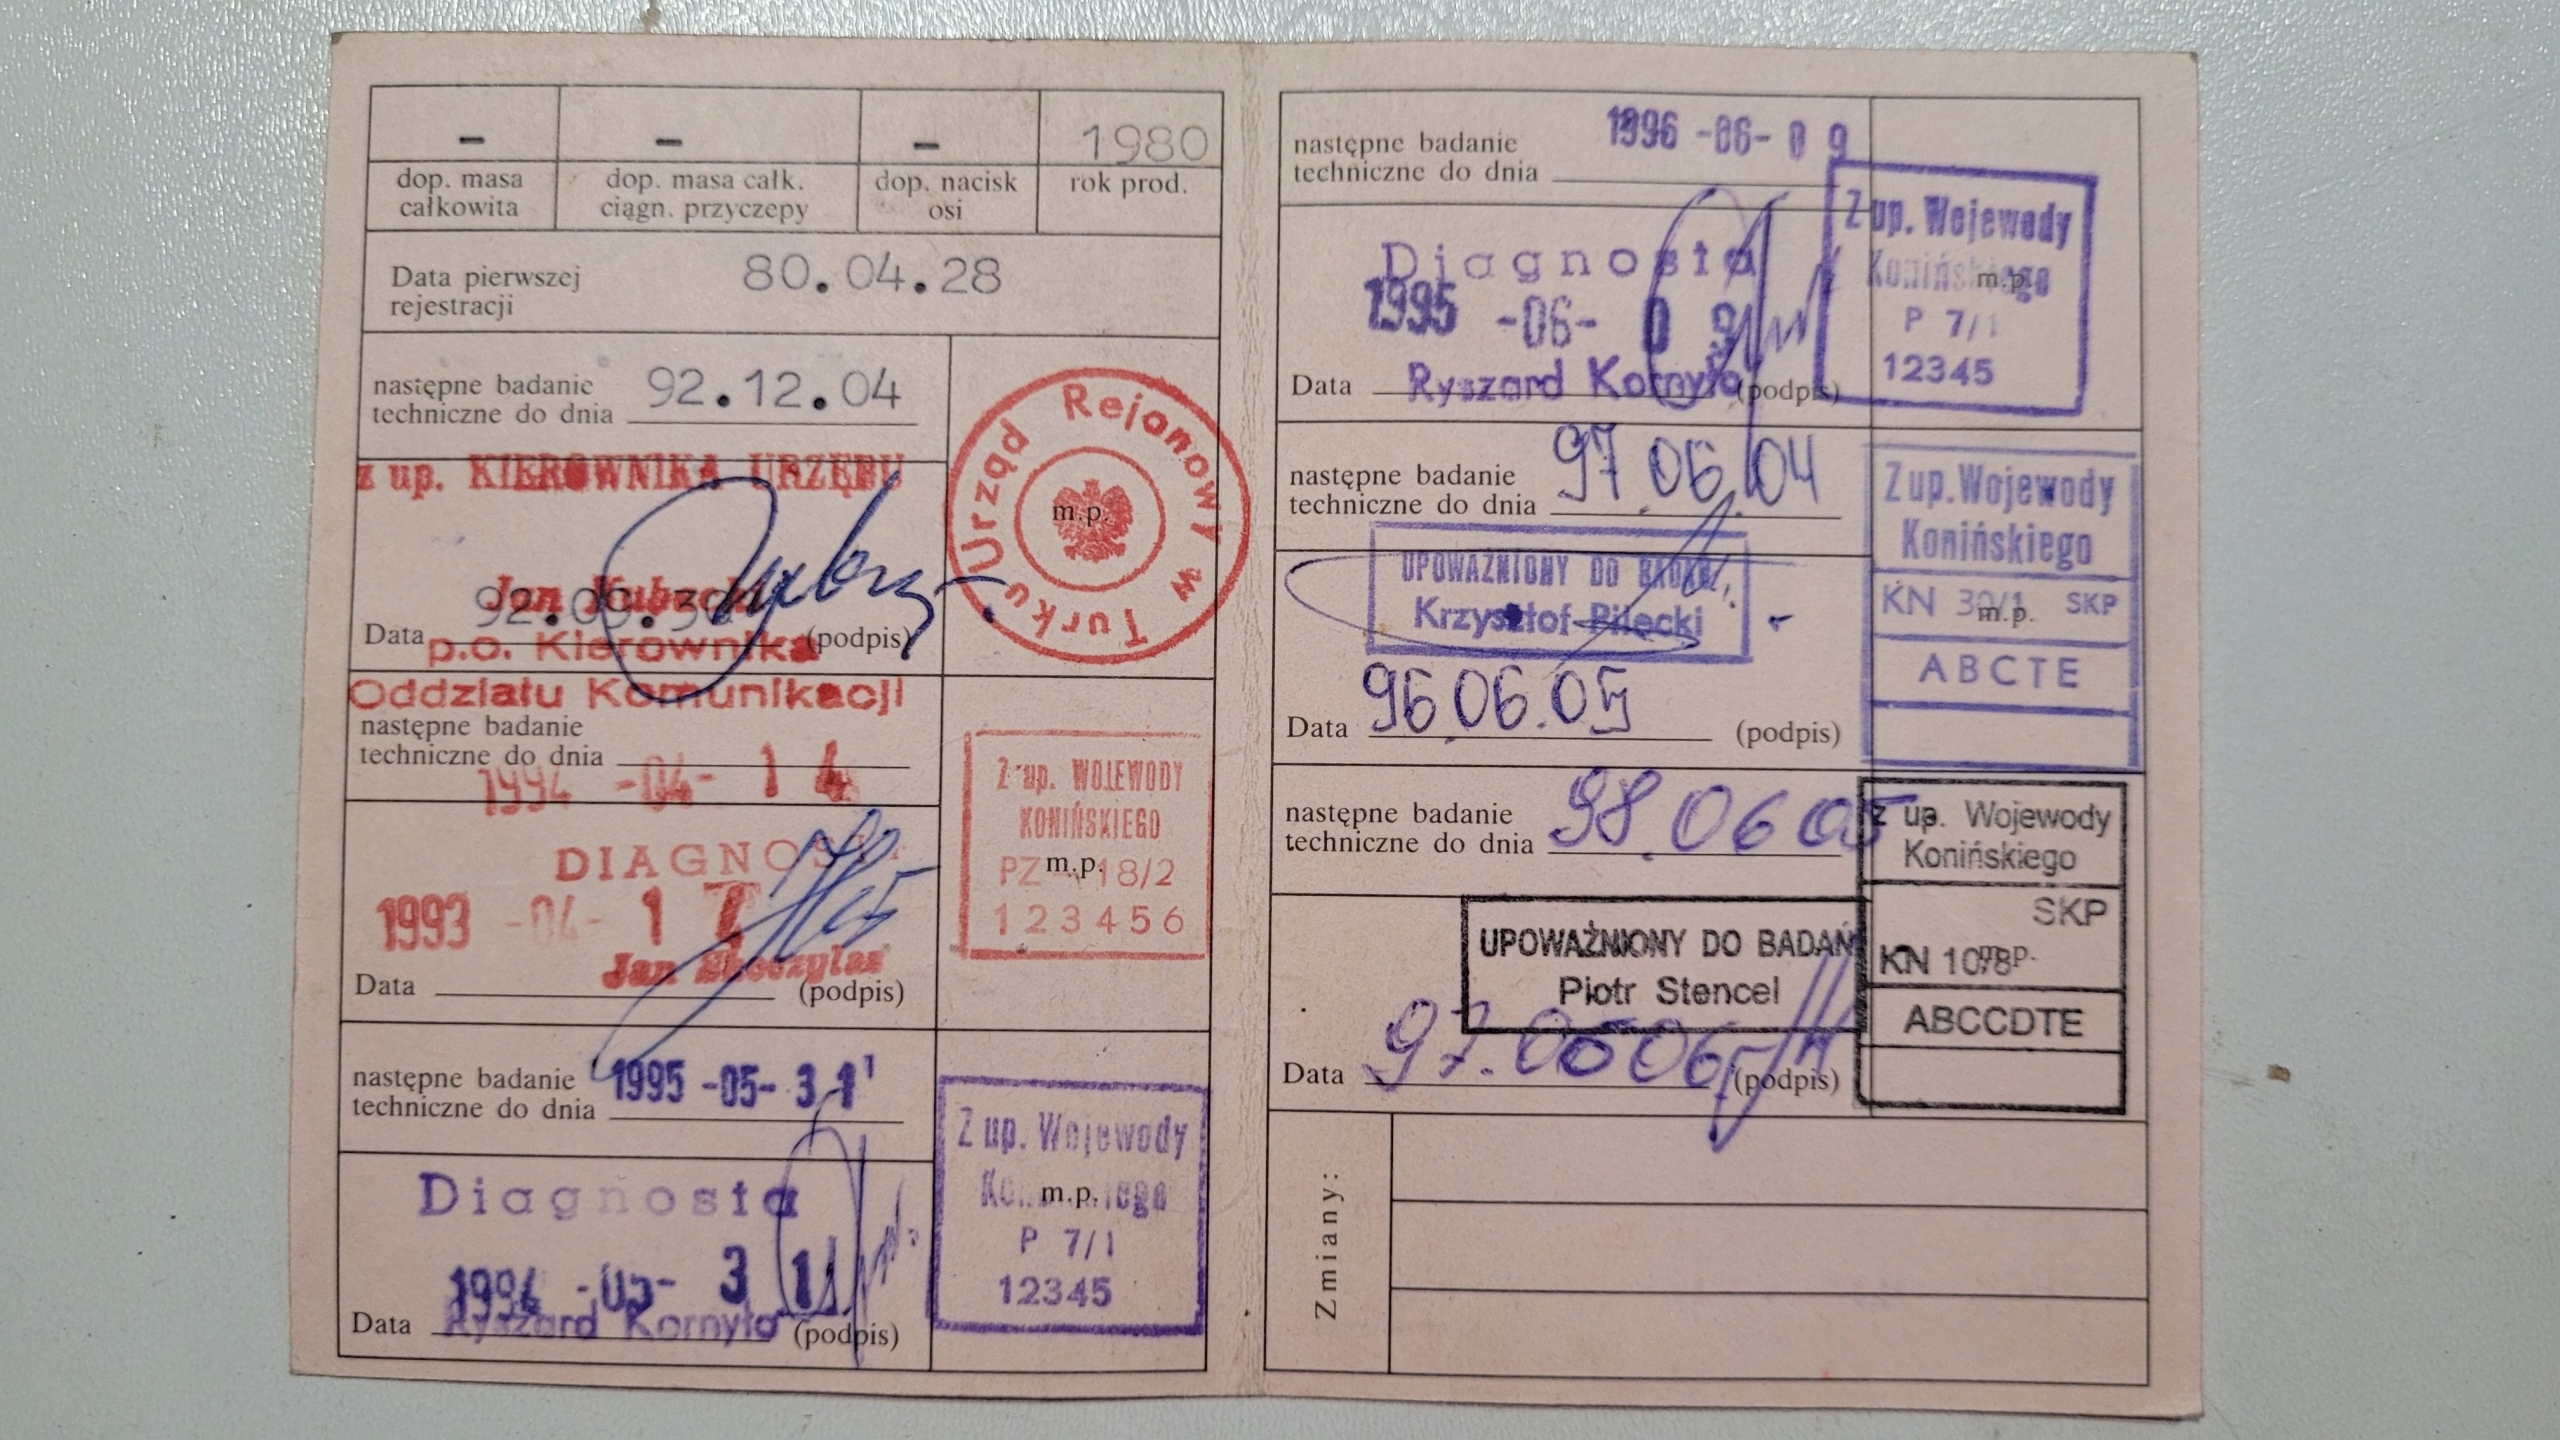 – – – 1980
dop. masa całkowita
dop. masa całk. ciągn. przyczepy
dop. nacisk osi
rok prod.
Data pierwszej rejestracji 80.04.28
następne badanie
techniczne do dnia 92.12.04
z up. KIEROWNIKA URZĘDU
Data (podpis)
p.o. Kierownika
Oddziału Komunikacji
Urząd Rejonowy w Turku
m.p.
następne badanie
techniczne do dnia
1994 -04- 14
DIAGNOSTA
1993 -04- 1
Jan
Data (podpis)
Z up. WOJEWODY
KONIŃSKIEGO
PZ m.p. 18/2
123456
następne badanie
techniczne do dnia 1995 -05- 31
Diagnosta
1994 -05- 31
Data Ryszard Kornyło (podpis)
Z up. Wojewody
m.p.
P 7/1
12345
następne badanie
techniczne do dnia 1996 -06- 09
Diagnosta
1995 -06- 09
Data Ryszard Kornyło (podpis)
Z up. Wojewody
Konińskiego
m.p.
P 7/1
12345
następne badanie
techniczne do dnia 97.06.04
UPOWAŻNIONY DO BADAŃ
Krzysztof Pilecki
Data 96.06.05 (podpis)
Z up. Wojewody
Konińskiego
KN 30/1 SKP
m.p.
ABCTE
następne badanie
techniczne do dnia 98.06 05
UPOWAŻNIONY DO BADAŃ
Piotr Stencel
Data 97.06 06 (podpis)
z up. Wojewody
Konińskiego
SKP
KN m.p.
ABCCDTE
Zmiany: